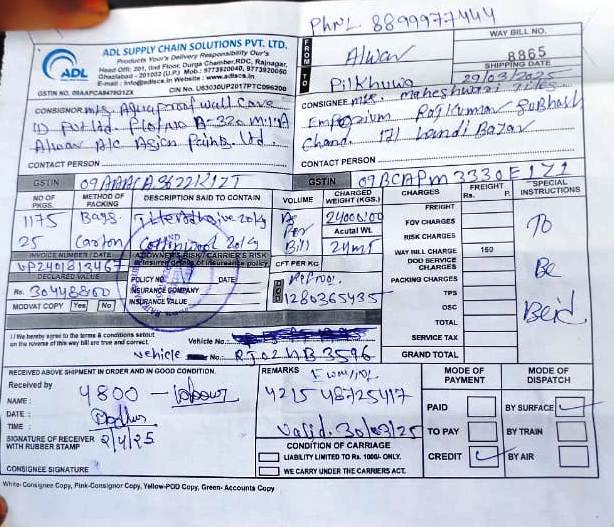 Ph No. 8899977444
ADL SUPPLY CHAIN SOLUTIONS PVT. LTD.
Products Your's Delivery Responsibility Our's
Head Off: 201, IInd Floor, Durga Chamber, RDC, Rajnagar,
Ghaziabad - 201002 (U.P.) Mob.: 9773920040, 9773920060
E-mail : info@adlscs.in Website : www.adlscs.in
ADL
GSTIN NO. 09AAPCA8479G1ZX CIN No. U63030UP2017PTC096200
FROM Alwar
TO Pilkhuwa
WAY BILL NO.
8865
SHIPPING DATE
29/03/2025
CONSIGNOR M/s. Aquaproof wall Care
(I) Pvt Ltd. Plot No A-320 MIA
Alwar A/c Asian Paints Ltd.
CONTACT PERSON
CONSIGNEE M/s. Maheshwari Tiles
Emporium Raj Kumar Subhash
Chand. 171 Bazar
CONTACT PERSON
GSTIN 09AAACA3622K1ZT
GSTIN 09BCAPM3330E1Z1
NO OF PKGS. METHOD OF PACKING DESCRIPTION SAID TO CONTAIN VOLUME CHARGED WEIGHT (KGS.) CHARGES FREIGHT Rs. P. SPECIAL INSTRUCTIONS
1175 Bags 20kg As 24000.00
25 Carton 20kg Per Bill Acutal Wt. 24MT
FREIGHT
FOV CHARGES
RISK CHARGES
WAY BILL CHARGE 150
DOD SERVICE CHARGES
PACKING CHARGES
TPS
OSC
TOTAL
SERVICE TAX
GRAND TOTAL
To
Be
INVOICE NUMBER / DATE
VP2401813467
DECLARED VALUE
Rs. 30448800
MODVAT COPY Yes No
AT OWNER'S RISK / CARRIER'S RISK
if insured details of insurance policy
POLICY NO. DATE
INSURANCE COMPANY
INSURANCE VALUE
CFT PER KG
Ref No.
1280365435
I / We hereby agree to the terms & conditions setout
on the reverse of this way bill are true and correct.
Vehicle No.:
Vehicle No.: RJ02HB3596
RECEIVED ABOVE SHIPMENT IN ORDER AND IN GOOD CONDITION.
Received by
4800 - labour
NAME :
DATE :
TIME :
SIGNATURE OF RECEIVER
WITH RUBBER STAMP
2/4/25
CONSIGNEE SIGNATURE
REMARKS
4215 4872 5417
Valid. 30/07/25
CONDITION OF CARRIAGE
LIABILITY LIMITED TO Rs. 1000/- ONLY.
WE CARRY UNDER THE CARRIERS ACT.
MODE OF PAYMENT
PAID
TO PAY
CREDIT
MODE OF DISPATCH
BY SURFACE
BY TRAIN
BY AIR
White- Consignee Copy, Pink-Consignor Copy, Yellow-POD Copy, Green- Accounts Copy